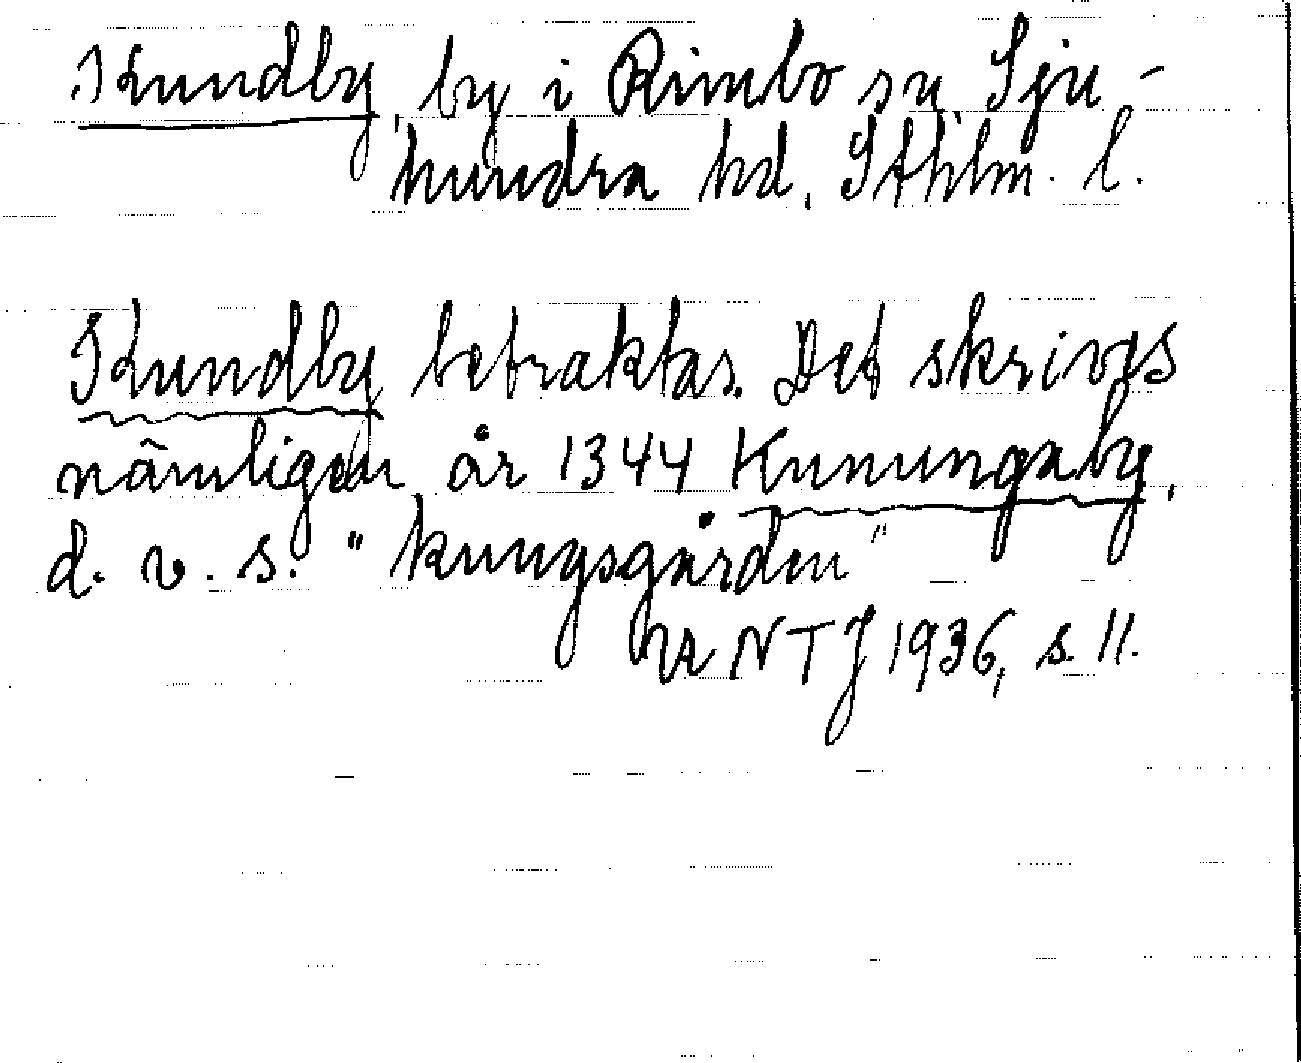 Kundby, by i Rimbo sn, Sju-
hundra hd, Sthlm. l.
Kundby betraktas. Det skrives
nämligen år 1344 Knunungaby,
d. v. s. "kungsgården"
Ur NTJ 1936, s. 11.